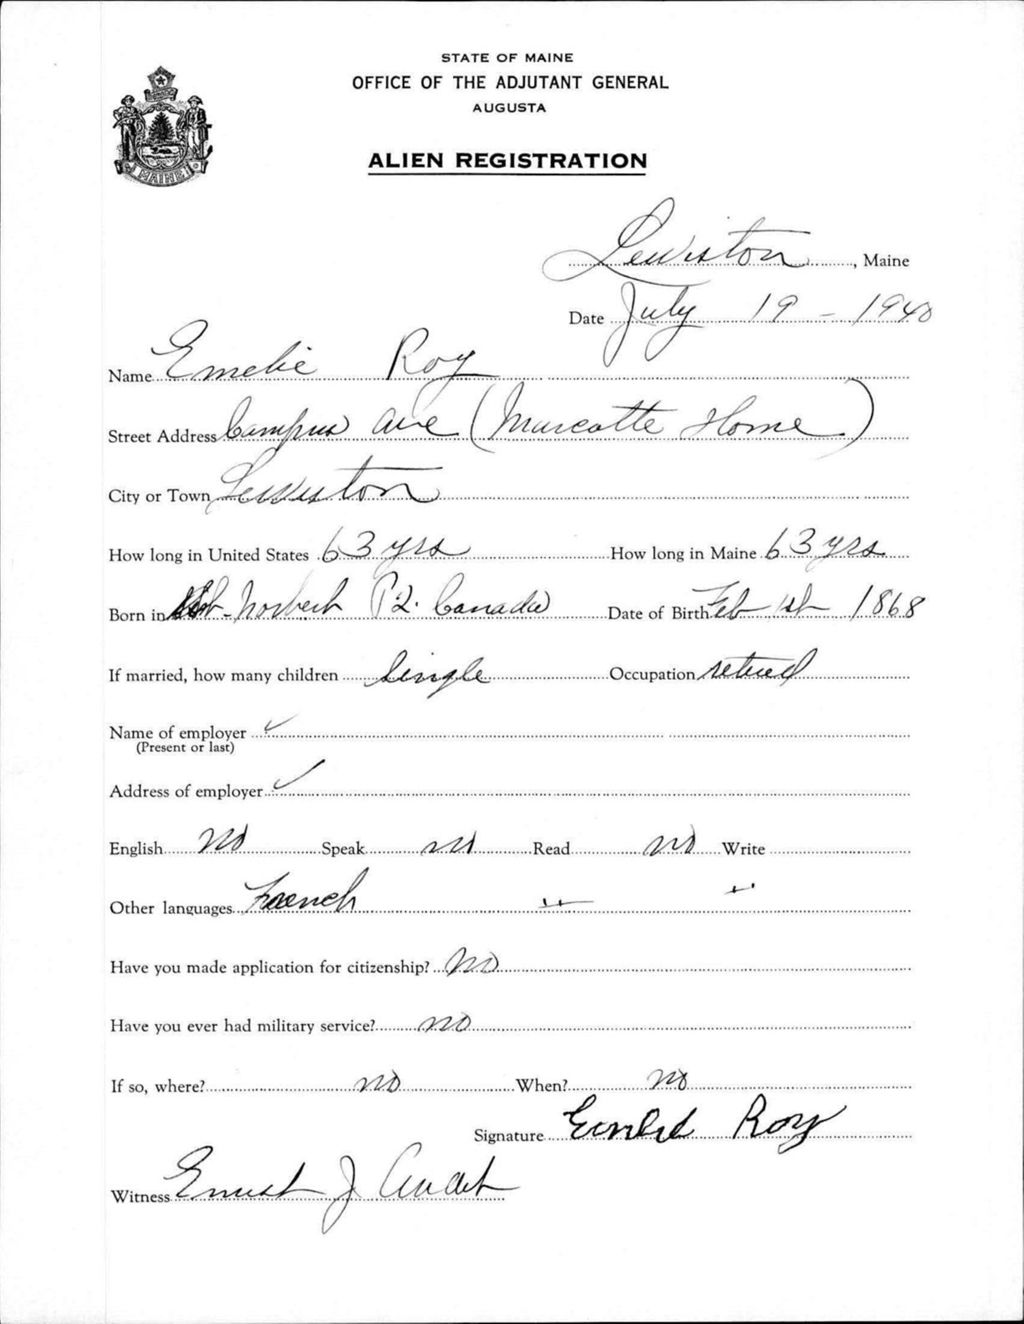 STATE OF MAINE
OFFICE OF THE ADJUTANT GENERAL
AUGUSTA
MAINE
ALIEN REGISTRATION
Lewiston, Maine
Date July 19 - 1940
Name Emelie Roy
Street Address Campus ave (Marcotte Home)
City or Town Lewiston
How long in United States 63 yrs How long in Maine 63 yrs
Born in Norbert P2. Canada Date of Birth Feb 1st 1868
If married, how many children Single Occupation retired
Name of employer ✓
(Present or last)
Address of employer ✓
English no Speak no Read no Write
Other languages French " "
Have you made application for citizenship? No
Have you ever had military service? no
If so, where? no When? no
Signature Roy
Witness Ernest J Audet